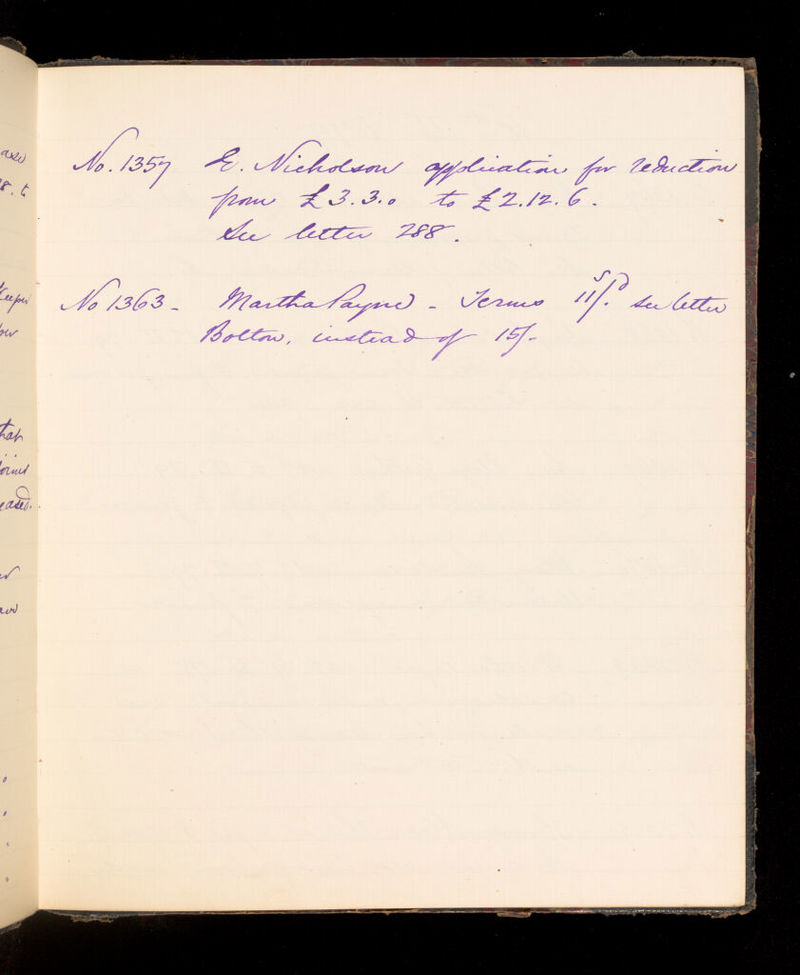 No. 1357 E. Nicholson application for reduction
from £3.3.0 to £2.12.6.
See letter 288.
No 1363 - Martha Payne - Terms 11/. see letter
Bolton, instead of 15/-